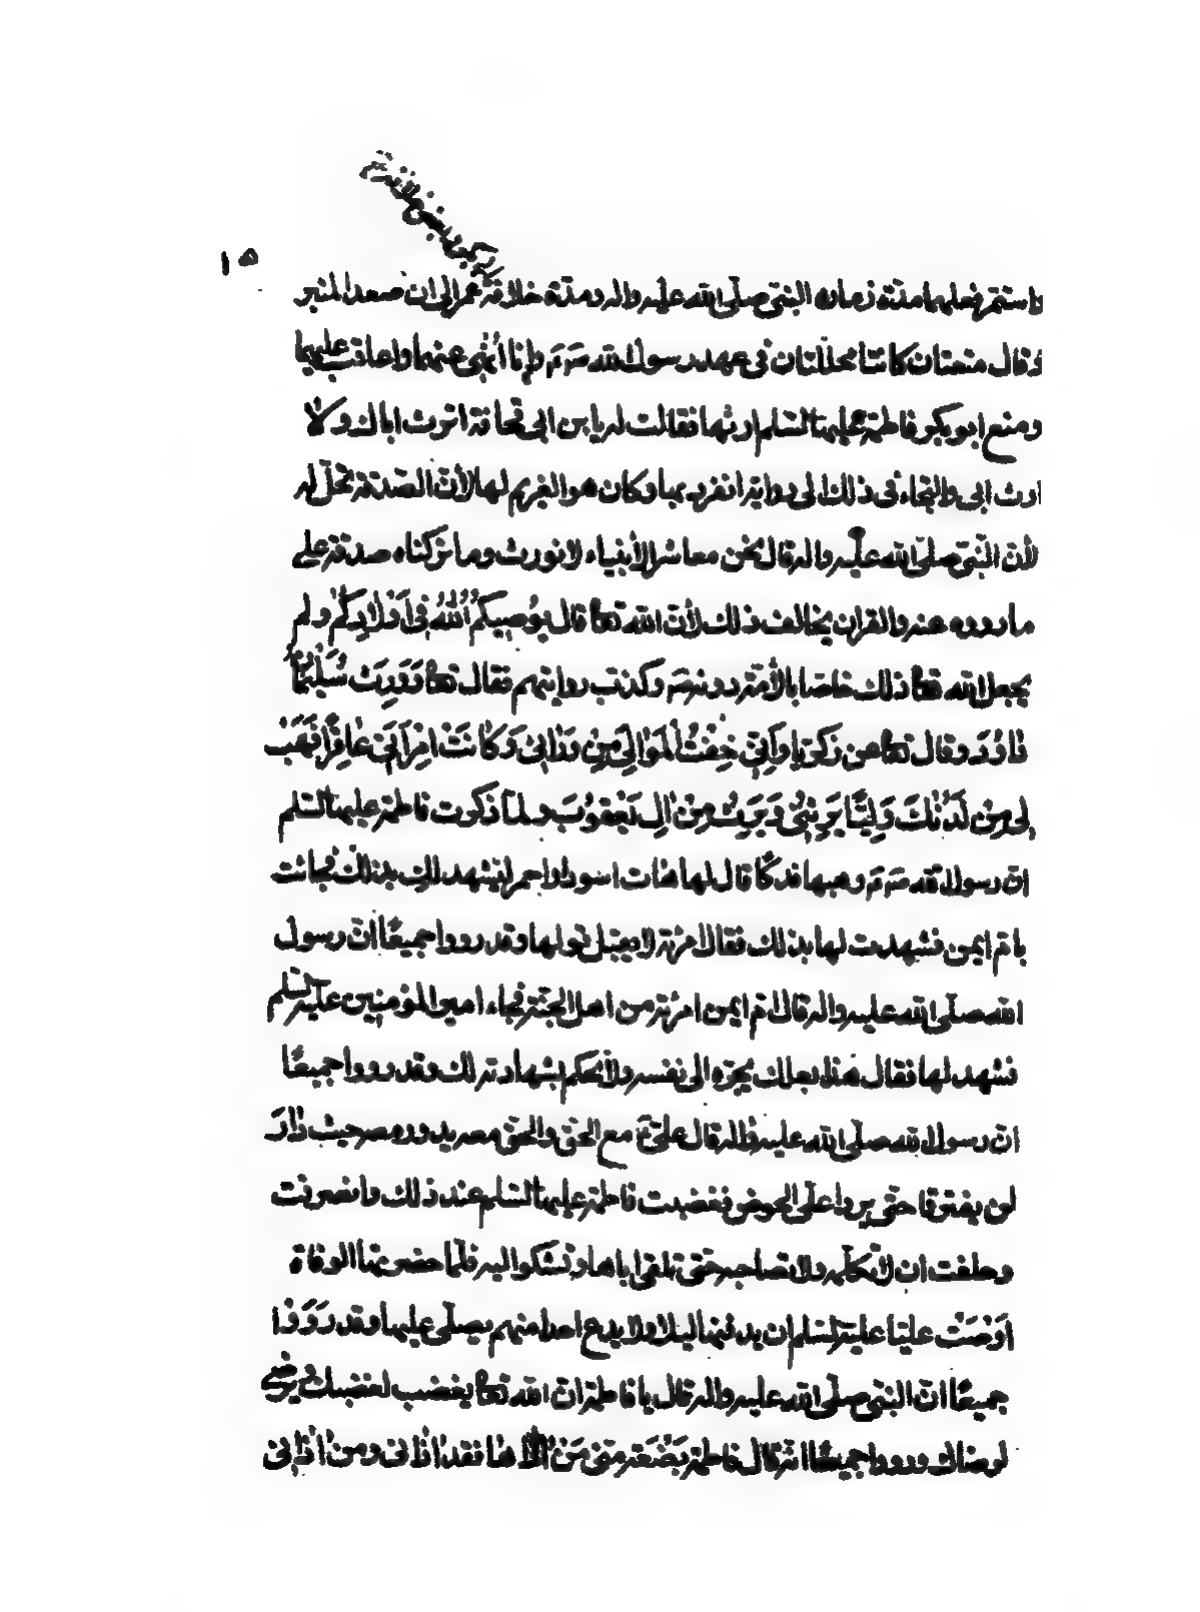 ١٥
واستمر فعلها مدة زمان النبى صلّى الله عليه واله ومدّة خلافة عمر الى ان صعد المنبر
وقال متعتان كانتا محلّلتان فى عهد رسول الله ص وإنا أنهى عنهما واعاقب عليهما
ومنع ابو بكر فاطمة عليها السّلم ارثها فقالت له يا بن ابى قحافة اترث اباك ولا
ارث ابى والتجاء فى ذلك الى رواية انفرد بها وكان هو الغريم لها لأنّ الصّدقة تحلّ له
لأنّ النّبىّ صلّى الله عليه واله قال نحن معاشر الأنبياء لا نورث وما تركناه صدقة على
ما رووه عنه والقران يخالف ذلك لأنّ الله تعا قال يُوصِيكُمُ اللهُ فِى اَوْلادِكُمْ ولم
يجعل الله تعا ذلك خاصّا بالأمّة دونه ص وكذب روايتهم فقال تعا وَوَرِثَ سُلَيْمٰنُ
دَاوُدَ وقال تعا عن زكريّا وَاِنّى خِفْتُ الْمَوَالِىَ مِنْ وَرَائِى وَكَانَتْ امْرَاَتِى عَاقِرًا فَهَبْ
لِى مِنْ لَدُنْكَ وَلِيًّا يَرِثُنِى وَيَرِثُ مِنْ اٰلِ يَعْقُوبَ ولمّا ذكرت فاطمة عليها السّلم
انّ رسول الله ص وهبها فدكًا قال لها هات اسود او احمر ليشهد لك بذلك فجائت
بامّ ايمن فشهدت لها بذلك فقال امرئة لا يقبل قولها وقد رووا جميعًا انّ رسول
الله صلّى الله عليه واله قال امّ ايمن امرئة من اهل الجنّة فجاء امير المؤمنين عليه السّلم
فشهد لها فقال هذا بعلك يجرّه الى نفسه ولا نحكم بشهادته لك وقد رووا جميعًا
انّ رسول الله صلّى الله عليه واله قال علىّ ع مع الحق والحق معه يدور معه حيث دَارَ
لن يفترقا حتى يردا على الحوض فغضبت فاطمة عليها السّلم عند ذلك وانصرفت
وحلفت ان لا تكلّمه ولا تصاحبه حتى تلقى اباها وتشكو اليه فلمّا حضرتها الوفاة
اَوْصَتْ عليّا عليه السّلم ان يدفنها ليلا ولا يدع احدا منهم يصلّى عليها وقد رَوَوْا
جميعًا انّ النبى صلّى الله عليه واله قال يا فاطمة انّ الله تعا يغضب لغضبك ويرضى
لرضاك ورووا جميعًا انّه قال فاطمة بَضْعَة منّى مَنْ اٰذاها فقد اٰذانى ومن اٰذانى